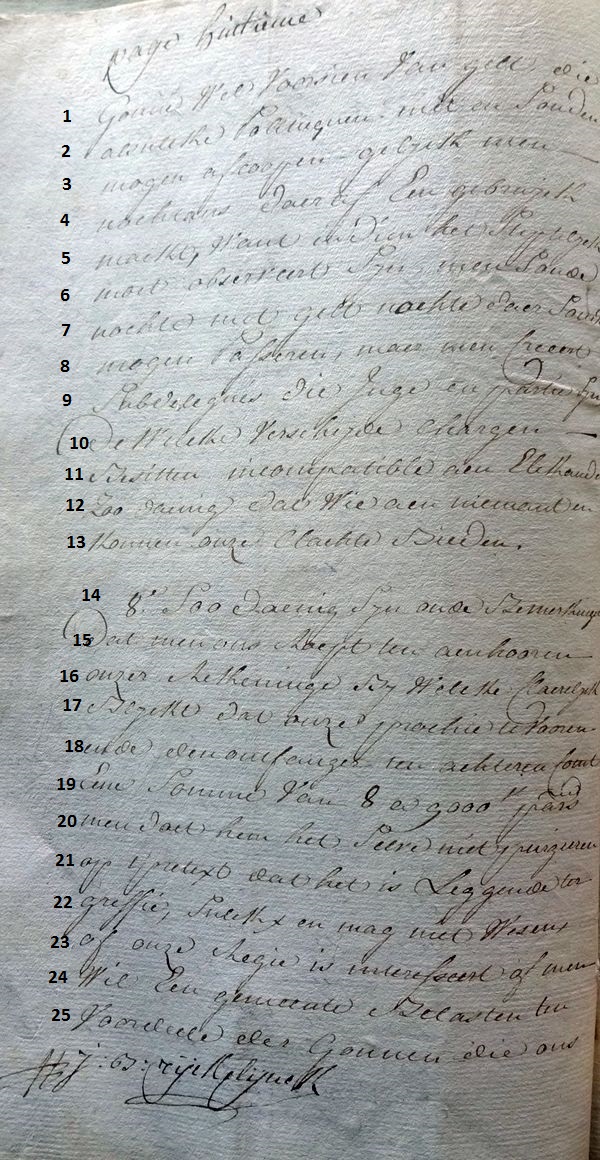 page huitieme
1 Gonne Wel Voorsien Van gelt die
2 aenleke practiquen met en Souden
3 mogen afcoopen gelyk men
4 nochtans daer af Een gebruyck
5 maekt, Want indien het
6 moet observeert Syn, men Soude
7 nochte met gelt nochte daer Sonder
8 mogen passeren, maer men creeert
9 Subdelegués die Juge en partie Syn
10 de Welcke Verscheyde chargen
11 Besitten incompatible aen Elckander
12 Zoo daenig dat Wie aen niemant en
13 konnen onze Clachte Bieden.
14 8.° Soo daenig Syn onde Bemerkinge
15 Dat men ons Roept ten aenhooren
16 onzer Rekeninge By Welcke Claerlyck
17 Blykt dat onze prochie te Vooren
18 ende den ontfanger ten achteren comt
19 Eene Somme Van 8 a 9000 pars
20 men doet hem het Selve niet purgieren
21 op t'pretext dat het is Leggende ter
22 greffie, Sulckx en mag niet Wesen,
23 of onze Regie is interesseert of men
24 Wil Een gemeente Belasten ten
25 Voordeele der Gonnen die ons